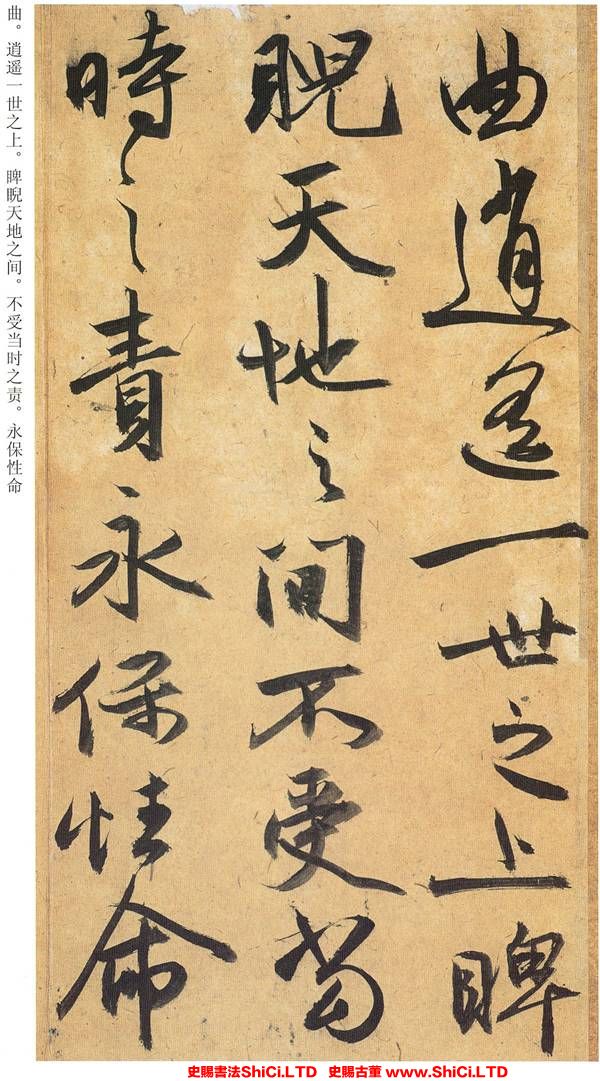 曲逍遥一世之上睥
睨天地之间不受当
時之責永保性命
曲。逍遥一世之上。睥睨天地之间。不受当时之责。永保性命
史賜書法ShiCi.LTD 史賜古董 www.ShiCi.LTD